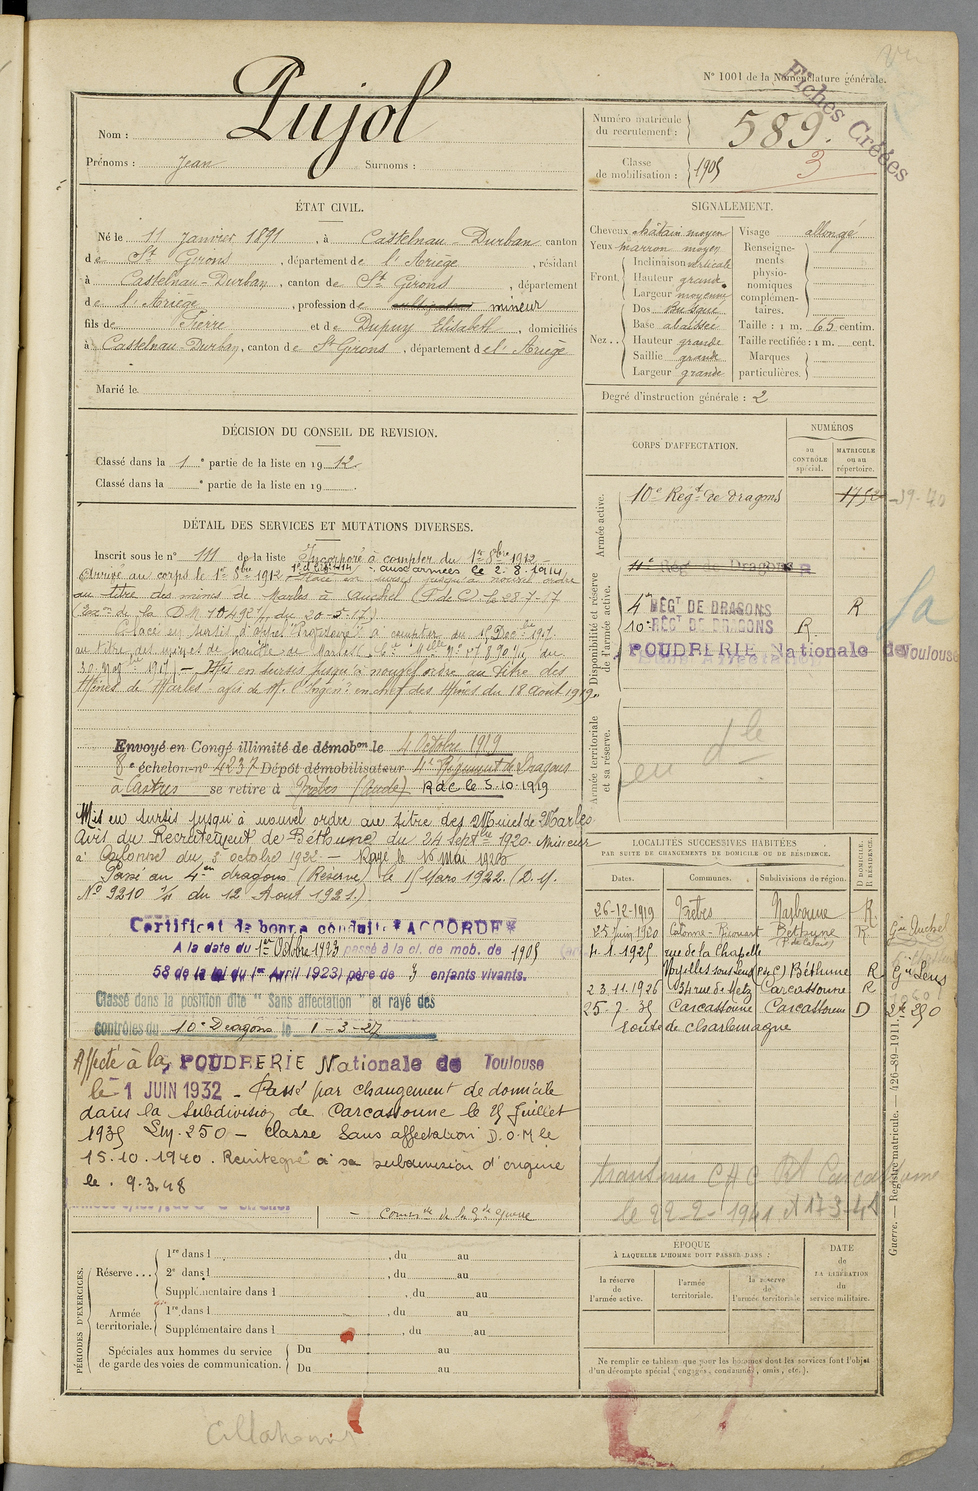 N° 1001 de la Nomenclature générale.
Fiches Créées
Nom : Pujol
Prénoms : Jean Surnoms :
Numéro matricule du recrutement : 589.
Classe de mobilisation : 1905
3
ÉTAT CIVIL.
Né le 11 Janvier 1891, à Castelnau-Durban canton
de St Girons, département de l'Ariège, résidant
à Castelnau-Durban, canton de St Girons, département
de l'Ariège, profession de mineur
fils de Pierre et de Dupuy Elisabeth, domiciliés
à Castelnau-Durban, canton de St Girons, département de l'Ariège
Marié le
SIGNALEMENT.
Cheveux chatain moyen
Yeux marron moyen
Front. Inclinaison verticale
Hauteur grande
Largeur moyenne
Nez... Dos Busqué
Base abaissée
Hauteur grande
Saillie grande
Largeur grande
Visage allongé
Renseignements physionomiques complémentaires.
Taille : 1 m. 65 centim.
Taille rectifiée : 1 m. cent.
Marques particulières.
Degré d'instruction générale : 2
DÉCISION DU CONSEIL DE REVISION.
Classé dans la 1e partie de la liste en 1912
Classé dans la e partie de la liste en 19 .
CORPS D'AFFECTATION.
NUMÉROS
au CONTRÔLE spécial.
MATRICULE ou au répertoire.
Armée active.
10e Régt de dragons
39-40
Disponibilité et réserve de l'armée active.
4e Régt de Dragons
4e RÉGT DE DRAGONS R
10e RÉGT DE DRAGONS R
POUDRERIE Nationale de Toulouse
Sans Affectation
Armée territoriale et sa réserve.
DÉTAIL DES SERVICES ET MUTATIONS DIVERSES.
Inscrit sous le n° 111 de la liste Incorporé à compter du 1er 8bre 1912
Arrivé au corps le 1er 8bre 1912 aux armées le 2.8.1914
Placé en sursis jusqu'à nouvel ordre
au titre des mines de Marles à Auchel
Placé en sursis
au titre des mines de houille de Marles
Mis en sursis jusqu'à nouvel ordre au titre des
Mines de Marles avis de Mr l'Ingénr en chef des Mines du 18 août 1919.
Envoyé en Congé illimité de démobon le 4 Octobre 1919
8e échelon n° 4237 Dépôt démobilisateur 4e Régiment de Dragons
à Castres se retire à Trèbes (Aude) RdC le 5-10-1919
Mis en sursis jusqu'à nouvel ordre au titre des Mines de Marles
Avis du Recrutement de Béthune du 24 Septbre 1920. Mineur
à Calonne du 5 octobre 1922. — Rayé le 16 Mai 1920
Passé au 4e dragons (Réserve) le 15 Mars 1922. (D.M.
N° 9210 1/1 du 12 Août 1921.)
Certificat de bonne conduite "ACCORDÉ"
A la date du 1er Octobre 1923 passé à la cl. de mob. de 1905
58 de la loi du 1er Avril 1923) père de 3 enfants vivants.
Classé dans la position dite " Sans affectation " et rayé des
contrôles du 10e Dragons le 1-3-27
Affecté à la POUDRERIE Nationale de Toulouse
le 1 JUIN 1932 — Passé par changement de domicile
dans la Subdivision de Carcassonne le 25 Juillet
1935 250 — classé Sans affectation D.O.M le
15.10.1940. Réintégré à sa subdivision d'origine
le 9.3.48
LOCALITÉS SUCCESSIVES HABITÉES
PAR SUITE DE CHANGEMENTS DE DOMICILE OU DE RÉSIDENCE.
Dates. Communes. Subdivisions de région. D DOMICILE. R RÉSIDENCE.
26-12-1919 Trèbes Narbonne R.
25 Juin 1920 Calonne-Ricouart Béthune R. Gie Auchel
(P de Calais)
4.1.1925 rue de la Chapelle
Noyelles sous Lens (P de C) Béthune R Gie Lens
23.11.1926 34 rue de Metz Carcassonne R
25-7-35 Carcassonne Carcassonne D 250
route de Charlemagne
transmis Carcassonne
le 22-2-1941 et 17-3-48
PÉRIODES D'EXERCICES.
Réserve...
1re dans l , du au
2e dans l , du au
Supplémentaire dans l , du au
Armée territoriale.
1re dans l , du au
Supplémentaire dans l , du au
Spéciales aux hommes du service de garde des voies de communication.
Du au
Du au
ÉPOQUE
À LAQUELLE L'HOMME DOIT PASSER DANS :
la réserve de l'armée active.
l'armée territoriale.
la réserve de l'armée territoriale
DATE de LA LIBÉRATION du service militaire.
Ne remplir ce tableau que pour les hommes dont les services font l'objet
d'un décompte spécial (engagés, condamnés, omis, etc.).
Guerre. — Registre matricule. — 426-89-1911.